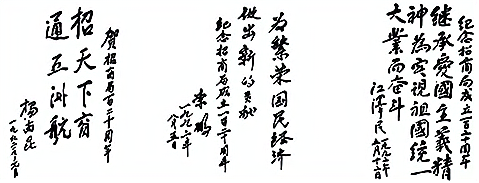 纪念招商局成立一百二十周年
继承愛國主義精
神為实現祖國統一
大業而奋斗
江泽民
一九九二年
為繁荣国民经济
做出新的贡献
纪念招商局成立一百二十周年
李鹏
一九九二年
八月五日
贺招商局百二十周年
招天下商
通五洲航
杨尚昆